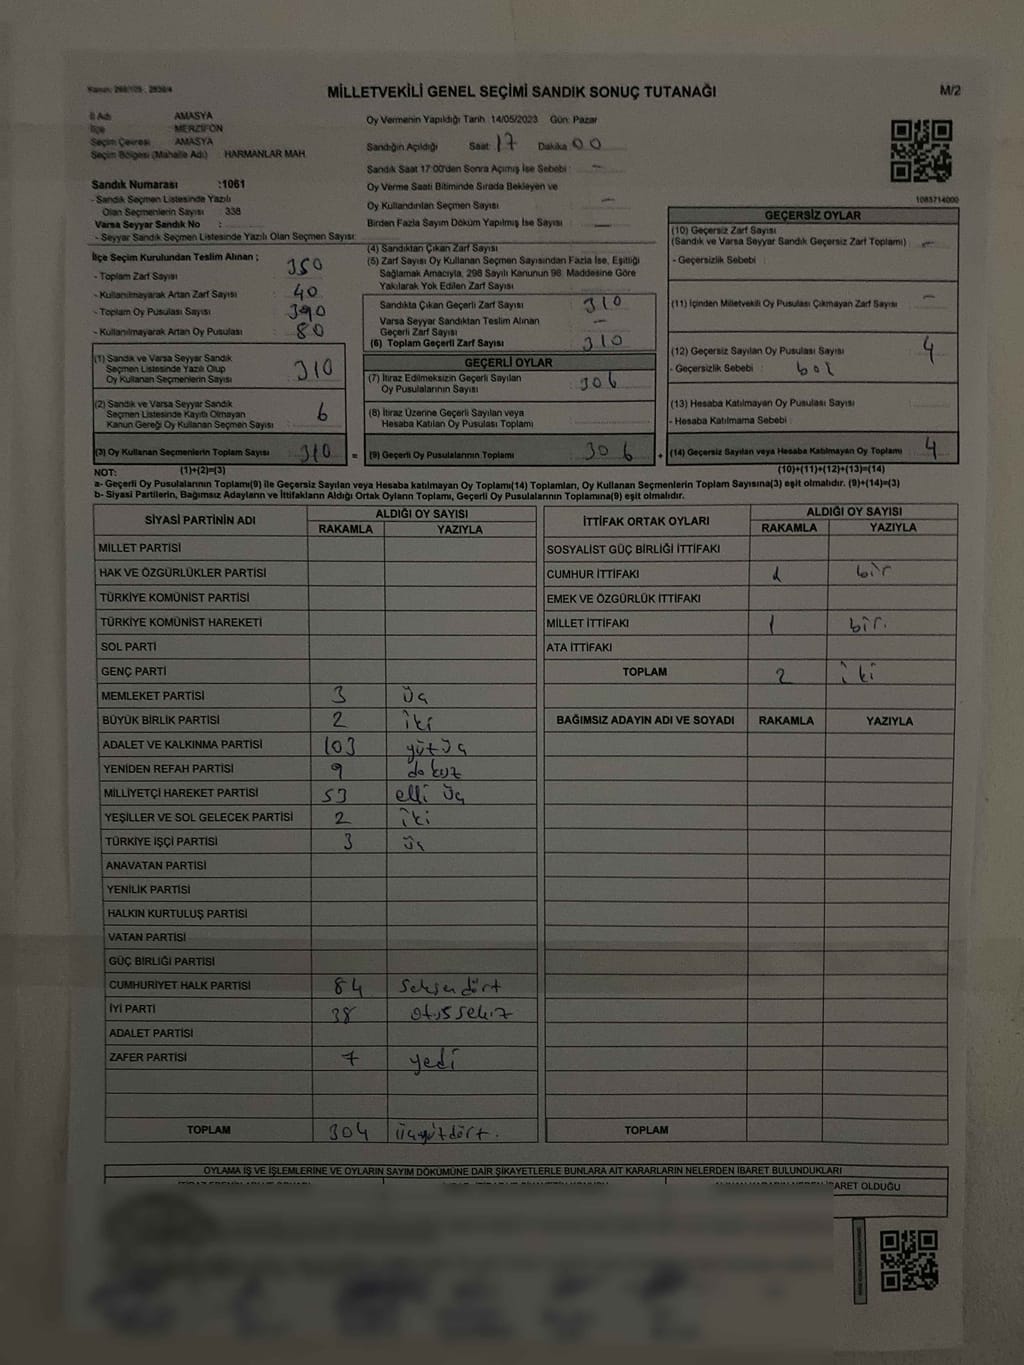 Kanun: 298/105 - 2839/4
MİLLETVEKİLİ GENEL SEÇİMİ SANDIK SONUÇ TUTANAĞI
M/2
İl Adı AMASYA
İlçe MERZİFON
Seçim Çevresi AMASYA
Seçim Bölgesi (Mahalle Adı) : HARMANLAR MAH
Sandık Numarası :1061
- Sandık Seçmen Listesinde Yazılı
Olan Seçmenlerin Sayısı : 338
Varsa Seyyar Sandık No :
- Seyyar Sandık Seçmen Listesinde Yazılı Olan Seçmen Sayısı:
Oy Vermenin Yapıldığı Tarih 14/05/2023 Gün: Pazar
Sandığın Açıldığı Saat: 17 Dakika 00
Sandık Saat 17:00'den Sonra Açımış İse Sebebi : —
Oy Verme Saati Bitiminde Sırada Bekleyen ve
Oy Kullandırılan Seçmen Sayısı : —
Birden Fazla Sayım Döküm Yapılmış İse Sayısı : —
1083714000
İlçe Seçim Kurulundan Teslim Alınan ;
- Toplam Zarf Sayısı : 350
- Kullanılmayarak Artan Zarf Sayısı : 40
- Toplam Oy Pusulası Sayısı : 390
- Kullanılmayarak Artan Oy Pusulası : 80
(1) Sandık ve Varsa Seyyar Sandık
Seçmen Listesinde Yazılı Olup
Oy Kullanan Seçmenlerin Sayısı : 310
(2) Sandık ve Varsa Seyyar Sandık
Seçmen Listesinde Kayıtlı Olmayan
Kanun Gereği Oy Kullanan Seçmen Sayısı : 6
(3) Oy Kullanan Seçmenlerin Toplam Sayısı : 310
(4) Sandıktan Çıkan Zarf Sayısı
(5) Zarf Sayısı Oy Kullanan Seçmen Sayısından Fazla İse, Eşitliği
Sağlamak Amacıyla, 298 Sayılı Kanunun 98. Maddesine Göre
Yakılarak Yok Edilen Zarf Sayısı :
Sandıkta Çıkan Geçerli Zarf Sayısı : 310
Varsa Seyyar Sandıktan Teslim Alınan
Geçerli Zarf Sayısı : —
(6) Toplam Geçerli Zarf Sayısı : 310
GEÇERLİ OYLAR
(7) İtiraz Edilmeksizin Geçerli Sayılan
Oy Pusulalarının Sayısı : 306
(8) İtiraz Üzerine Geçerli Sayılan veya
Hesaba Katılan Oy Pusulası Toplamı :
= (9) Geçerli Oy Pusulalarının Toplamı : 306
GEÇERSİZ OYLAR
(10) Geçersiz Zarf Sayısı
(Sandık ve Varsa Seyyar Sandık Geçersiz Zarf Toplamı) : —
- Geçersizlik Sebebi :
(11) İçinden Milletvekili Oy Pusulası Çıkmayan Zarf Sayısı : —
(12) Geçersiz Sayılan Oy Pusulası Sayısı : 4
- Geçersizlik Sebebi :
(13) Hesaba Katılmayan Oy Pusulası Sayısı :
- Hesaba Katılmama Sebebi :
+ (14) Geçersiz Sayılan veya Hesaba Katılmayan Oy Toplamı : 4
NOT: (1)+(2)=(3)
(10)+(11)+(12)+(13)=(14)
a- Geçerli Oy Pusulalarının Toplamı(9) ile Geçersiz Sayılan veya Hesaba katılmayan Oy Toplamı(14) Toplamları, Oy Kullanan Seçmenlerin Toplam Sayısına(3) eşit olmalıdır. (9)+(14)=(3)
b- Siyasi Partilerin, Bağımsız Adayların ve İttifakların Aldığı Ortak Oyların Toplamı, Geçerli Oy Pusulalarının Toplamına(9) eşit olmalıdır.
SİYASİ PARTİNİN ADI ALDIĞI OY SAYISI
RAKAMLA YAZIYLA
MİLLET PARTİSİ
HAK VE ÖZGÜRLÜKLER PARTİSİ
TÜRKİYE KOMÜNİST PARTİSİ
TÜRKİYE KOMÜNİST HAREKETİ
SOL PARTİ
GENÇ PARTİ
MEMLEKET PARTİSİ 3 üç
BÜYÜK BİRLİK PARTİSİ 2 iki
ADALET VE KALKINMA PARTİSİ 103 yüzüç
YENİDEN REFAH PARTİSİ 9 dokuz
MİLLİYETÇİ HAREKET PARTİSİ 53 elli üç
YEŞİLLER VE SOL GELECEK PARTİSİ 2 iki
TÜRKİYE İŞÇİ PARTİSİ 3 üç
ANAVATAN PARTİSİ
YENİLİK PARTİSİ
HALKIN KURTULUŞ PARTİSİ
VATAN PARTİSİ
GÜÇ BİRLİĞİ PARTİSİ
CUMHURİYET HALK PARTİSİ 84 seksendört
İYİ PARTİ 38 otuzsekiz
ADALET PARTİSİ
ZAFER PARTİSİ 7 yedi
TOPLAM 304 üçyüzdört.
İTTİFAK ORTAK OYLARI ALDIĞI OY SAYISI
RAKAMLA YAZIYLA
SOSYALİST GÜÇ BİRLİĞİ İTTİFAKI
CUMHUR İTTİFAKI 1 bir
EMEK VE ÖZGÜRLÜK İTTİFAKI
MİLLET İTTİFAKI 1 bir.
ATA İTTİFAKI
TOPLAM 2 iki
BAĞIMSIZ ADAYIN ADI VE SOYADI RAKAMLA YAZIYLA
TOPLAM
OYLAMA İŞ VE İŞLEMLERİNE VE OYLARIN SAYIM DÖKÜMÜNE DAİR ŞİKAYETLERLE BUNLARA AİT KARARLARIN NELERDEN İBARET BULUNDUKLARI
İBARET OLDUĞU